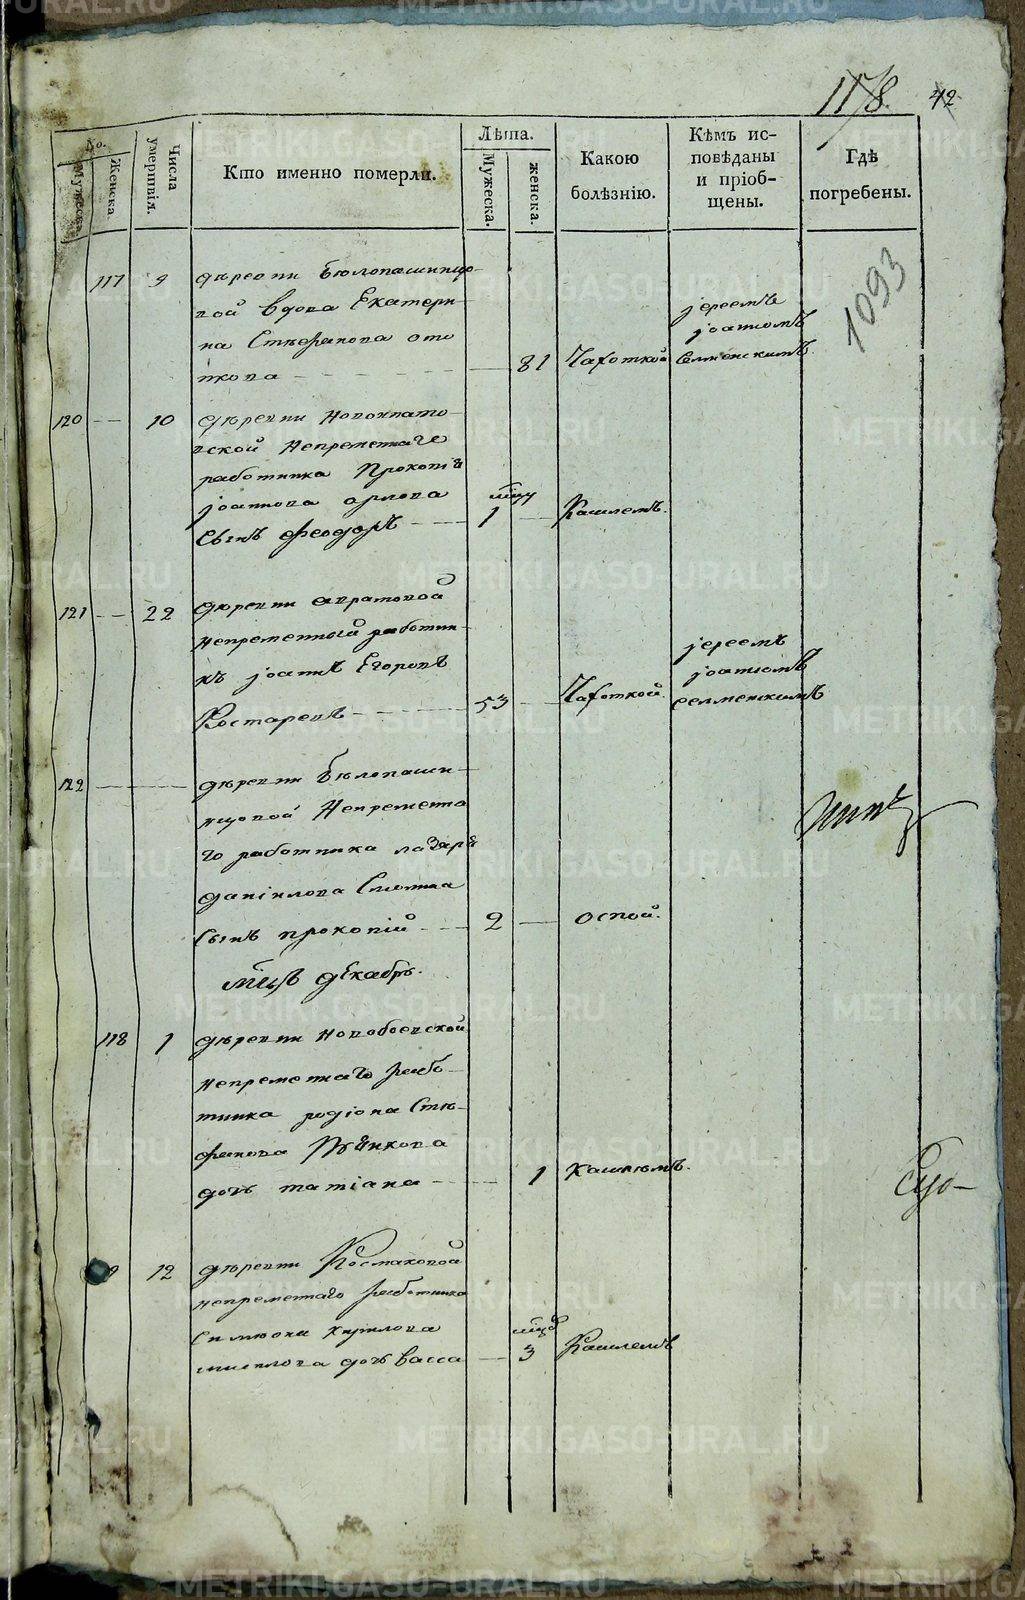 1178. 42
No.
Мужеска.
Женска.
Числа умершвія.
Кто именно померли.
Лѣта.
Мужеска.
женска.
Какою болѣзнію.
Кѣмъ исповѣданы и пріобщены.
Гдѣ погребены.
1093
117 9 деревни Бѣлопашинцо-
вой вдова Екатери-
на Стефанова
81 Чахоткой
іереемъ
іоанномъ
120 10 деревни Новоипато-
вской Непременнаго
работника Прокопія
іоаннова орлова
сынъ феодоръ 1 Кашлемъ.
121 22 деревни
непременный работни-
къ іоаннъ Егоровъ
Костаревъ 53 Чахоткой.
іереемъ
іоанномъ
122 деревни Бѣлопаши-
нцовой Непременна
го работника лазаря
даніилова
сынъ прокопій 2 оспой.
мцъ декабрь.
118 1 деревни новобоевской
непременнаго рабо-
тника родіона Сте-
фанова
дочь татіана 1 кашлемъ.
9 12 деревни Космаковой
непременнаго работника
Симеона кирилова
дочь васса 3 Кашлемъ